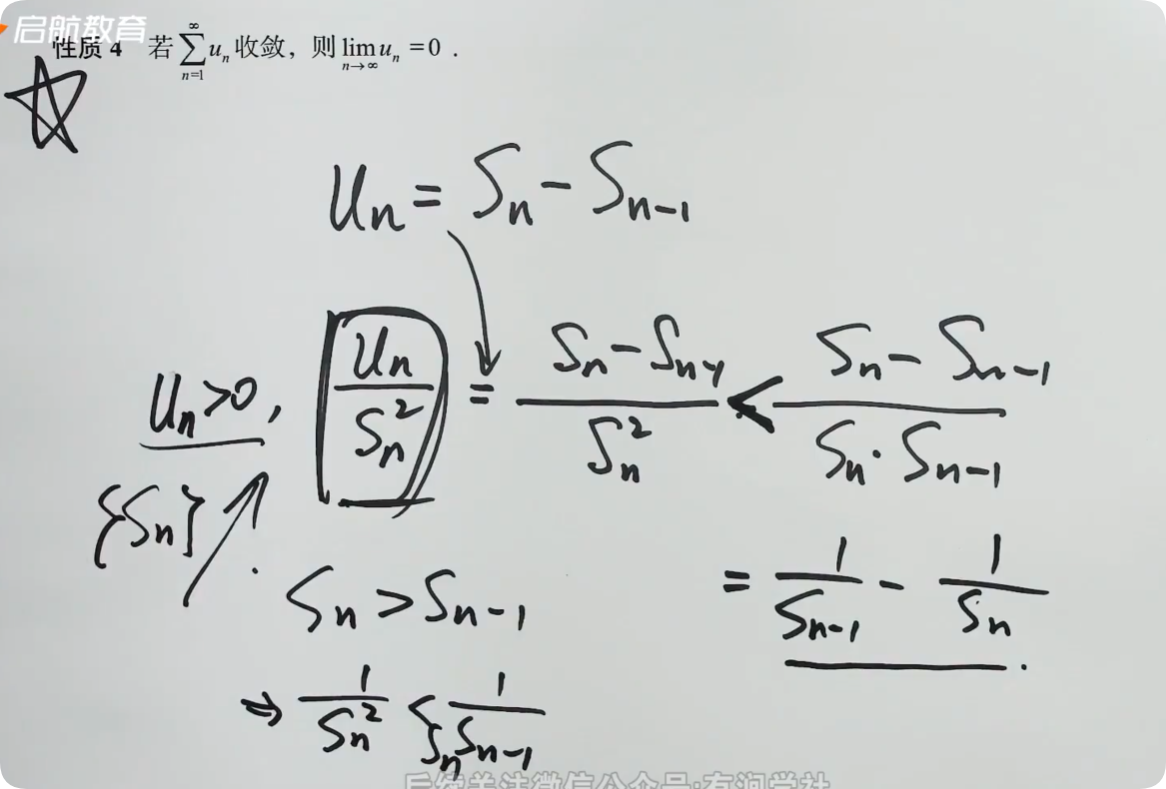 启航教育
性质 4 若 ∑_{n=1}^{∞} u_n 收敛，则 lim_{n→∞} u_n = 0 .
u_n = S_n - S_{n-1}
u_n > 0, u_n / S_n^2 = (S_n - S_{n-1}) / S_n^2 < (S_n - S_{n-1}) / (S_n · S_{n-1})
{S_n} ↗.
= 1/S_{n-1} - 1/S_n .
S_n > S_{n-1}
⇒ 1/S_n^2 < 1/(S_n S_{n-1})
后续关注微信公众号:有润学社